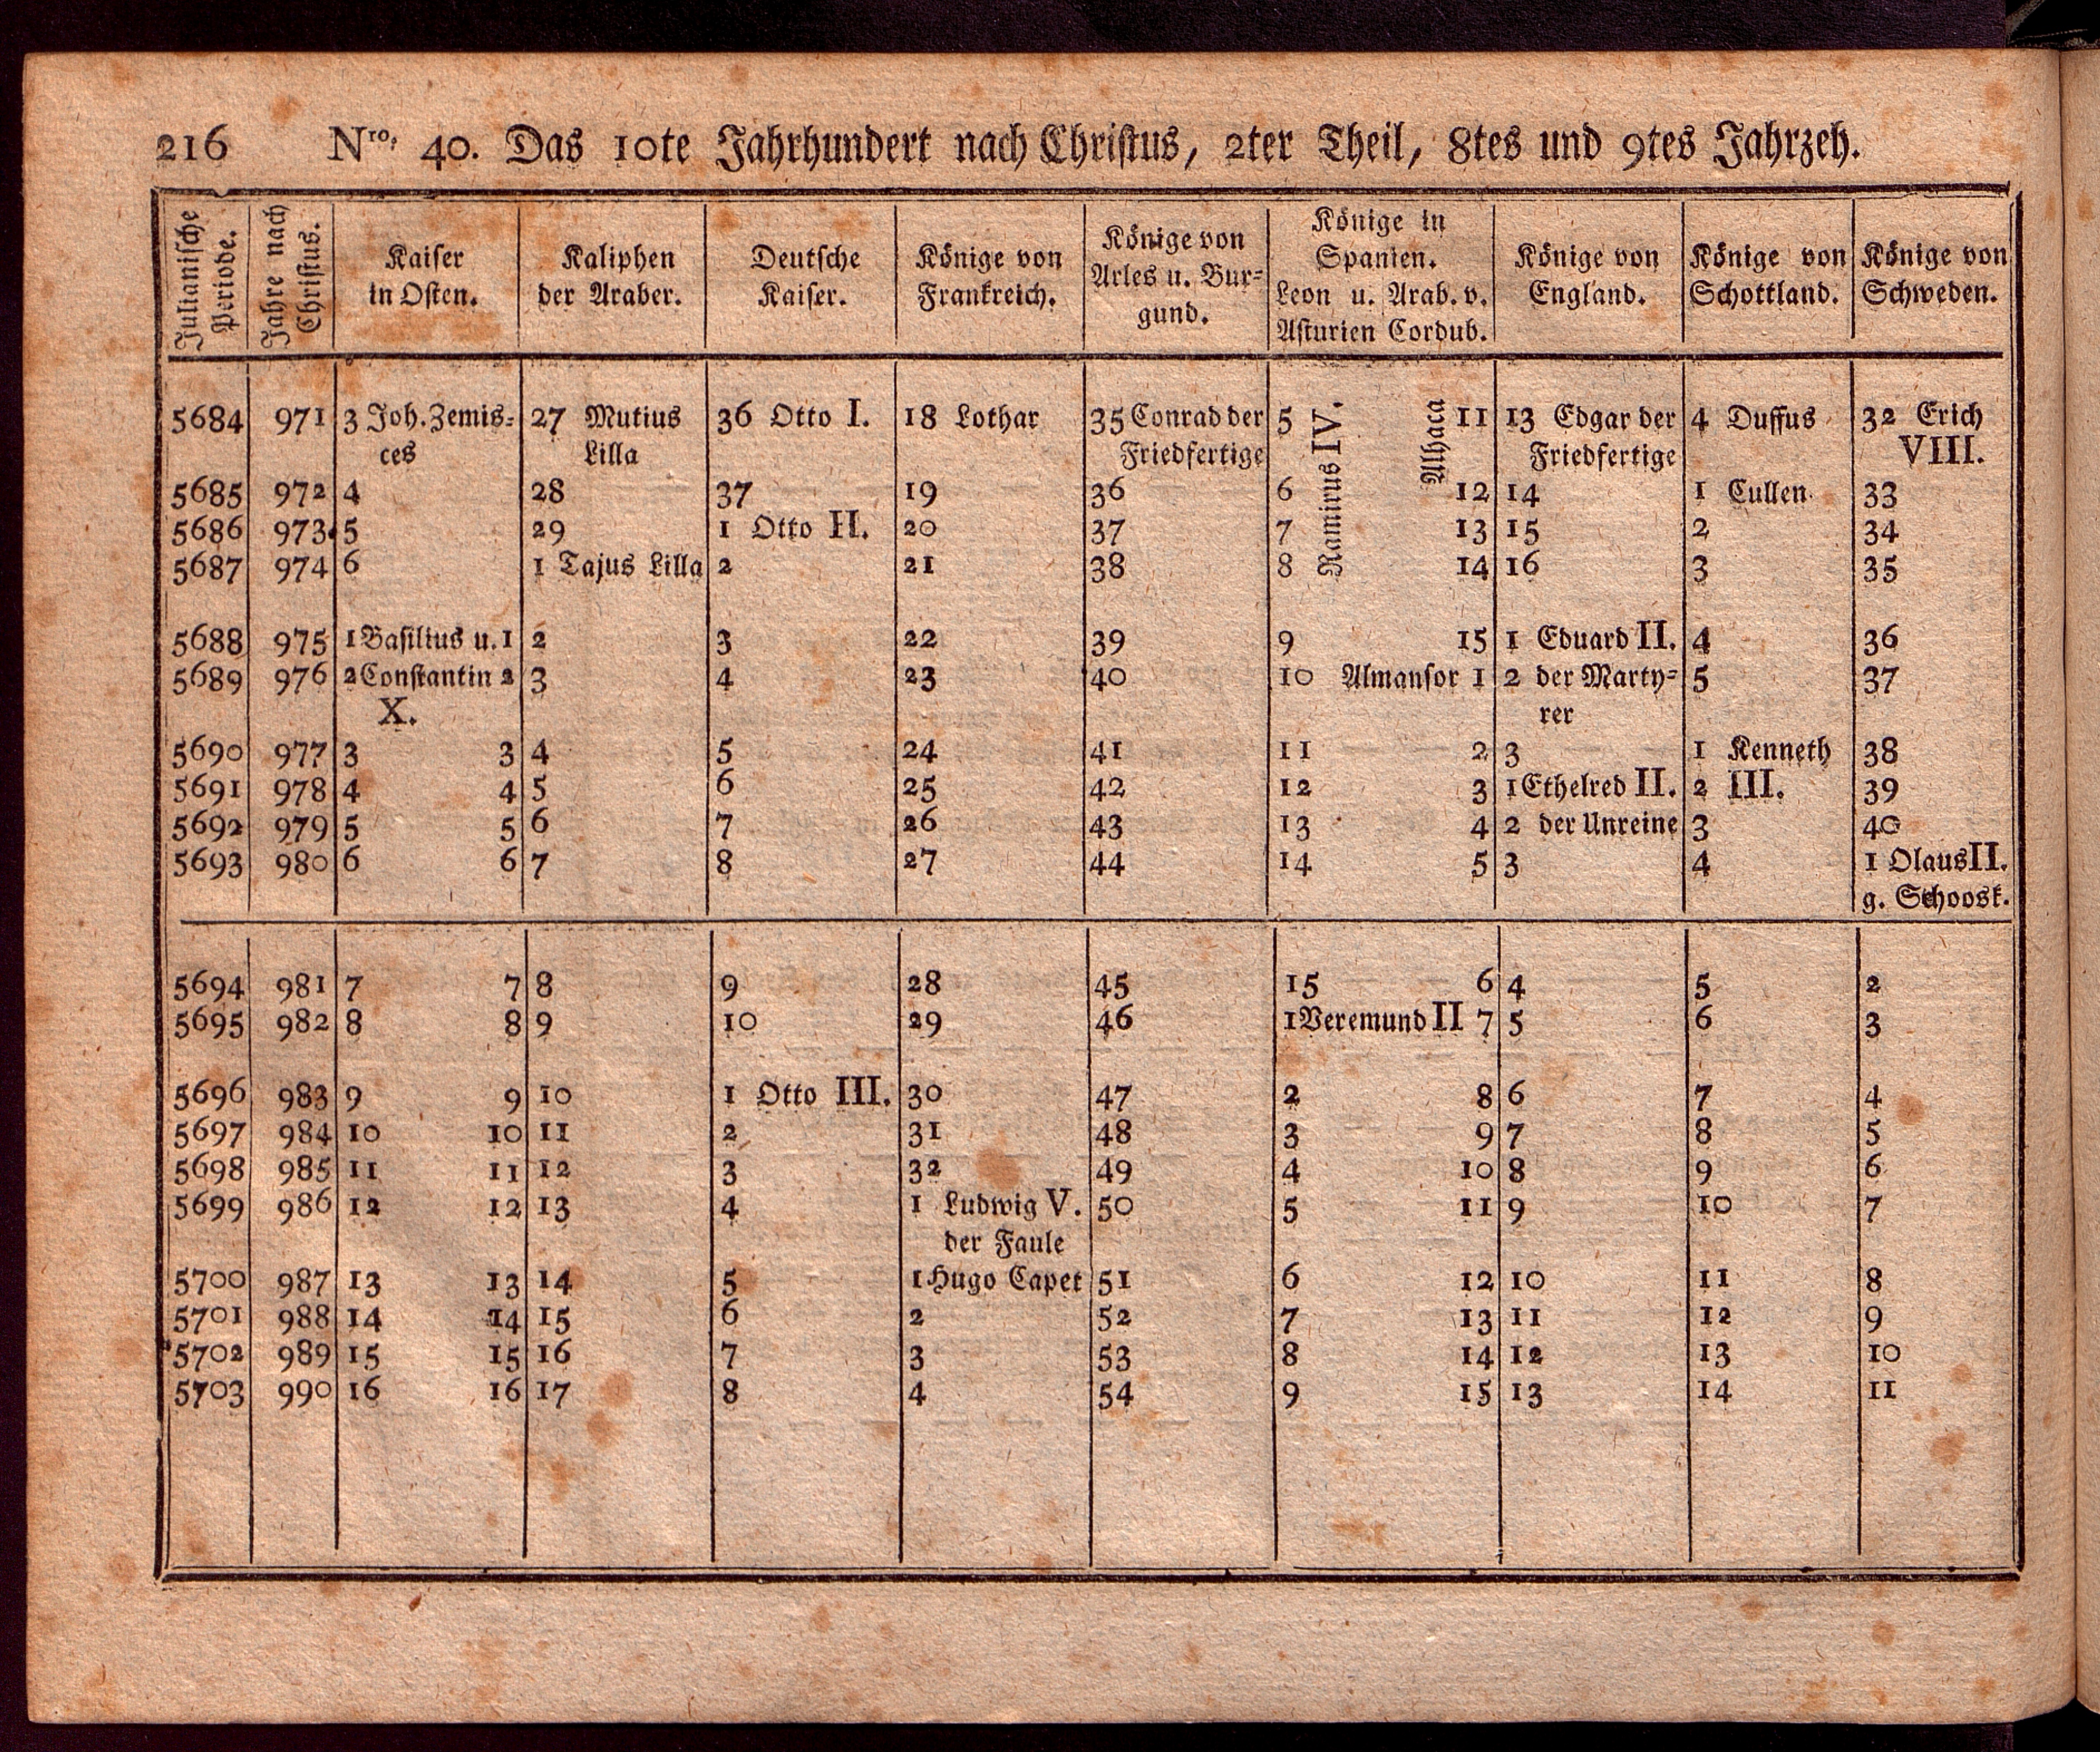 216 Nro. 40. Das 10te Jahrhundert nach Christus, 2ter Theil, 8tes und 9tes Jahrzeh.
Julianische Periode. | Jahre nach Christus. | Kaiser in Osten. | Kaliphen der Araber. | Deutsche Kaiser. | Könige von Frankreich. | Könige von Arles u. Bur= gund. | Könige in Spanien. Leon u. Arab. v. Asturien Cordub. | Könige von England. | Könige von Schottland. | Könige von Schweden.
5684 971 3 Joh. Zemis= 27 Mutius 36 Otto I. 18 Lothar 35 Conrad der 5 Ramirus IV. Alhaca 11 13 Edgar der 4 Duffus 32 Erich
ces Lilla Friedfertige Friedfertige VIII.
5685 972 4 28 37 19 36 6 12 14 1 Cullen 33
5686 973 5 29 1 Otto II. 20 37 7 13 15 2 34
5687 974 6 1 Tajus Lilla 2 21 38 8 14 16 3 35
5688 975 1 Basilius u. 1 2 3 22 39 9 15 1 Eduard II. 4 36
5689 976 2 Constantin 2 3 4 23 40 10 Almansor 1 2 der Marty= 5 37
X. rer
5690 977 3 3 4 5 24 41 11 2 3 1 Kenneth 38
5691 978 4 4 5 6 25 42 12 3 1 Ethelred II. 2 III. 39
5692 979 5 5 6 7 26 43 13 4 2 der Unreine 3 40
5693 980 6 6 7 8 27 44 14 5 3 4 1 Olaus II.
g. Schoosk.
5694 981 7 7 8 9 28 45 15 6 4 5 2
5695 982 8 8 9 10 29 46 1 Veremund II 7 5 6 3
5696 983 9 9 10 1 Otto III. 30 47 2 8 6 7 4
5697 984 10 10 11 2 31 48 3 9 7 8 5
5698 985 11 11 12 3 32 49 4 10 8 9 6
5699 986 12 12 13 4 1 Ludwig V. 50 5 11 9 10 7
der Faule
5700 987 13 13 14 5 1 Hugo Capet 51 6 12 10 11 8
5701 988 14 14 15 6 2 52 7 13 11 12 9
5702 989 15 15 16 7 3 53 8 14 12 13 10
5703 990 16 16 17 8 4 54 9 15 13 14 11